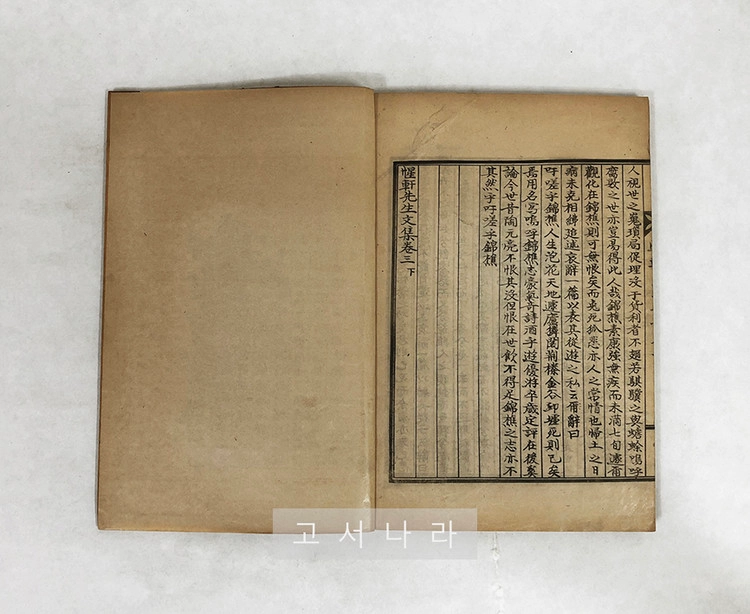 人視世之嵬瑣局促理沒于貨利者不翅若騏驥之與蟾蜍嗚呼
腐敗之世亦豈易得此人哉錦樵素康强無疾而未滿七旬遽爾
觀化在錦樵則可無恨矣而兎死狐悲亦人之常情也歸土之日
病未克相紼追述哀辭一篇以表其從遊之私云爾辭曰
吁嗟乎錦樵人生泡花天地遽廬荊榛金谷邱墟死則已矣
焉用名爲嗚呼錦樵志豪氣奇詩酒乎遊優游卒歲定評在後奚
論今世昔陶元亮不恨其沒但恨在世飮不得足錦樵之志亦不
其然乎吁嗟乎錦樵
惺軒先生文集卷三 下
고서나라